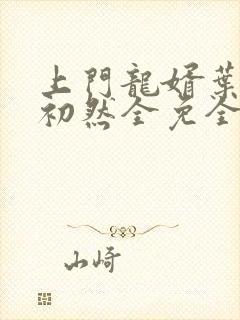 上門龍婿葉
初然全免全
山崎